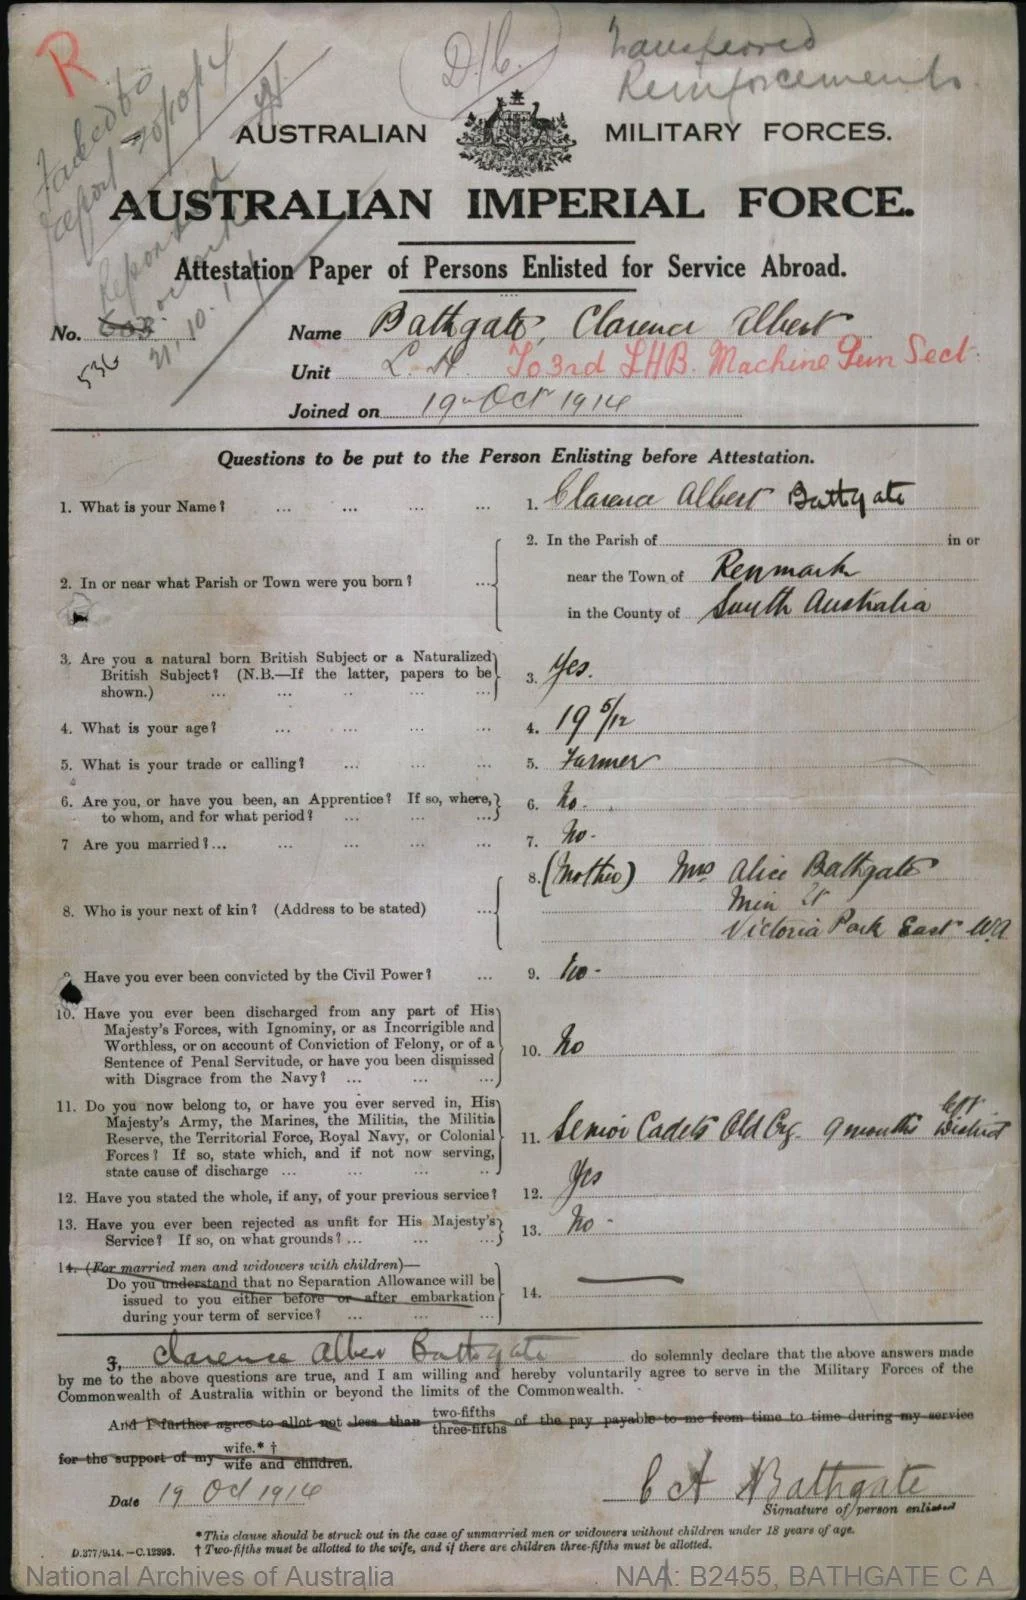 R
Failed to
report 20/10/14
Reported
21.10.14
D/C.
Transferred
Reinforcements
AUSTRALIAN MILITARY FORCES.
AUSTRALIAN IMPERIAL FORCE.
Attestation Paper of Persons Enlisted for Service Abroad.
No. 536
Name Bathgate, Clarence Albert
Unit L. H. To 3rd LHB. Machine Gun Sect.
Joined on 19 Oct 1914
Questions to be put to the Person Enlisting before Attestation.
1. What is your Name? ... ... ... ... 1. Clarence Albert Bathgate
2. In or near what Parish or Town were you born? ... 2. In the Parish of in or
near the Town of Renmark
in the County of South Australia
3. Are you a natural born British Subject or a Naturalized
British Subject? (N.B.—If the latter, papers to be
shown.) ... ... .. ... 3. Yes.
4. What is your age? ... ... ... ... 4. 19 5/12
5. What is your trade or calling? ... ... ... 5. Farmer
6. Are you, or have you been, an Apprentice? If so, where,
to whom, and for what period? ... ... ... 6. No.
7 Are you married?... ... ... ... 7. No-
8. Who is your next of kin? (Address to be stated) ... 8. (Mother) Mrs Alice Bathgate
Min St
Victoria Park East W.A
9. Have you ever been convicted by the Civil Power? ... 9. No-
10. Have you ever been discharged from any part of His
Majesty's Forces, with Ignominy, or as Incorrigible and
Worthless, or on account of Conviction of Felony, or of a
Sentence of Penal Servitude, or have you been dismissed
with Disgrace from the Navy? ... ... ... 10. No
11. Do you now belong to, or have you ever served in, His
Majesty's Army, the Marines, the Militia, the Militia
Reserve, the Territorial Force, Royal Navy, or Colonial
Forces? If so, state which, and if not now serving,
state cause of discharge ... ... .. 11. Senior Cadets Old Org. 9 months left District
12. Have you stated the whole, if any, of your previous service? 12. Yes
13. Have you ever been rejected as unfit for His Majesty's
Service? If so, on what grounds? ... ... ... 13. No-
14. (For married men and widowers with children)—
Do you understand that no Separation Allowance will be
issued to you either before or after embarkation
during your term of service? ... ... ... 14.
I, Clarence Albert Bathgate do solemnly declare that the above answers made
by me to the above questions are true, and I am willing and hereby voluntarily agree to serve in the Military Forces of the
Commonwealth of Australia within or beyond the limits of the Commonwealth.
And I further agree to allot not less than two-fifths three-fifths of the pay payable to me from time to time during my service
for the support of my wife.* † wife and children.
Date 19 Oct 1914
C A Bathgate
Signature of person enlisted
*This clause should be struck out in the case of unmarried men or widowers without children under 18 years of age.
D.377/9.14.—C.12393. † Two-fifths must be allotted to the wife, and if there are children three-fifths must be allotted.
National Archives of Australia NAA: B2455, BATHGATE C A